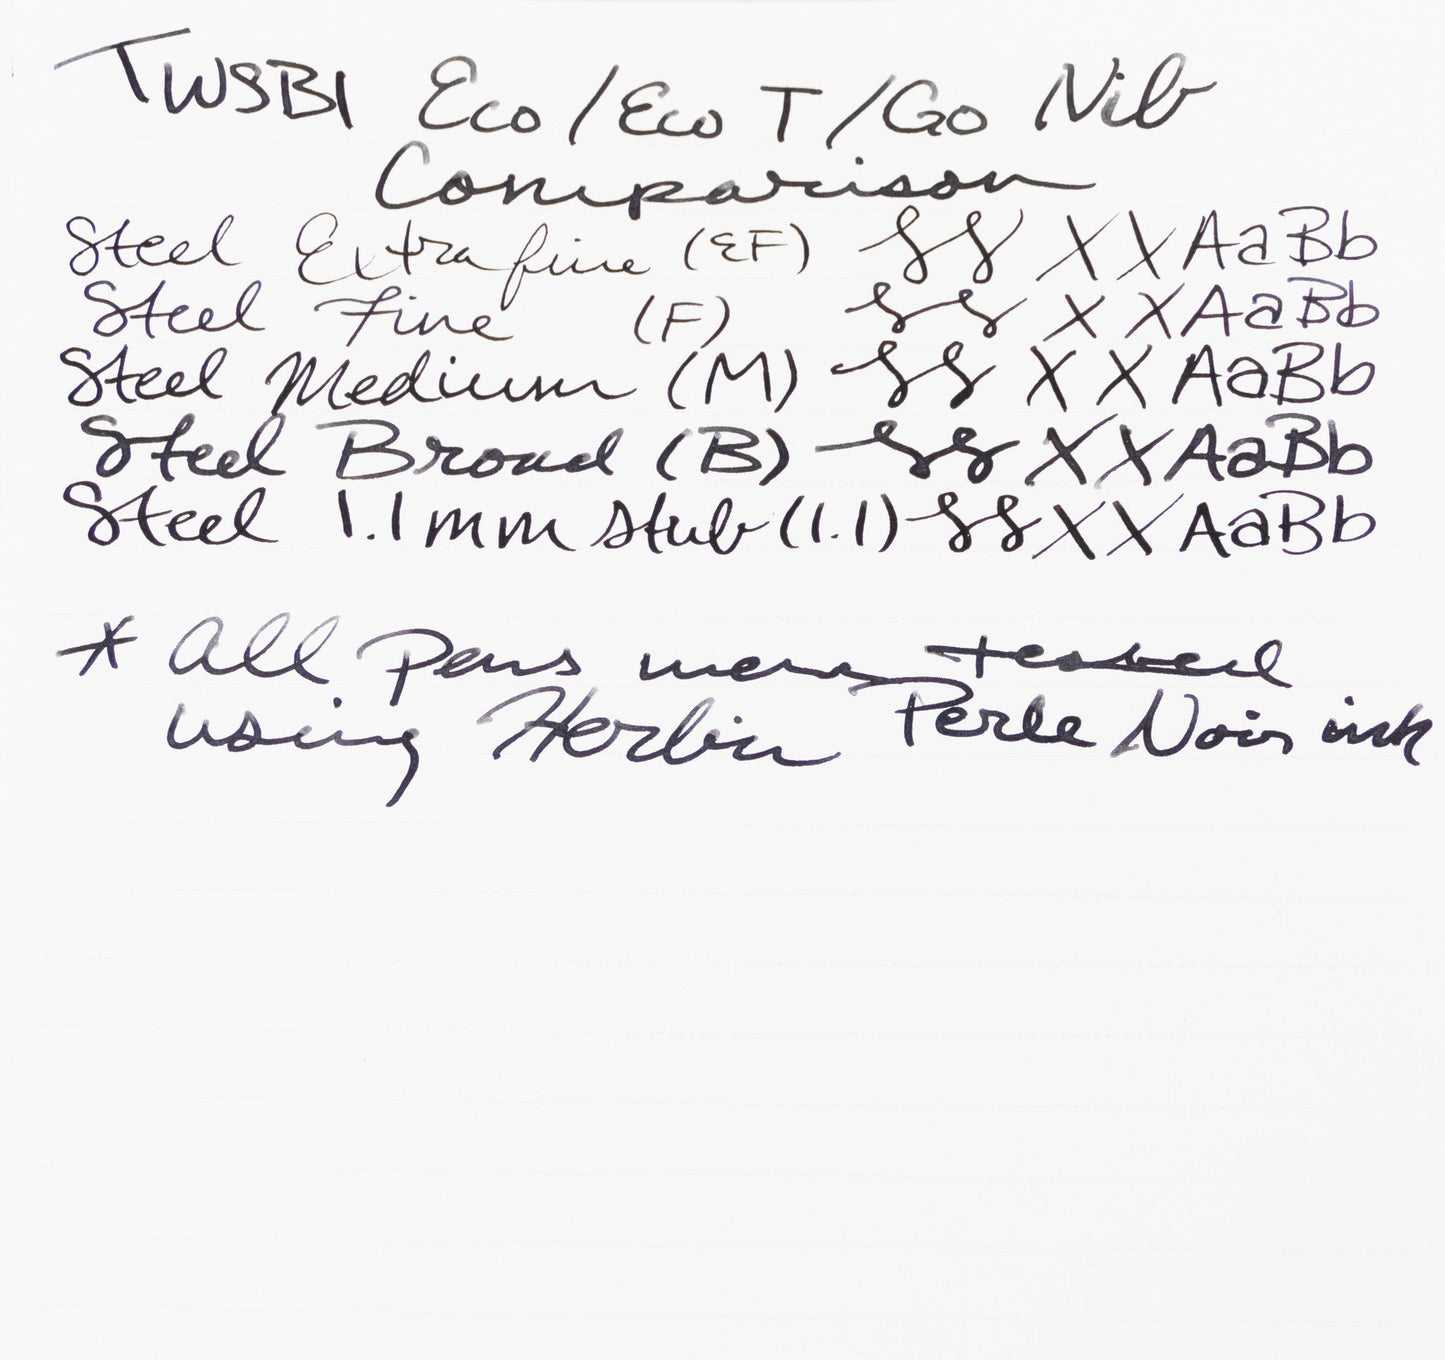 TWSBI Eco/Eco T/Go Nib
Comparison
Steel Extra fine (EF) XX AaBb
Steel Fine (F) XX AaBb
Steel Medium (M) XX AaBb
Steel Broad (B) XX AaBb
Steel 1.1mm Stub (1.1) XX AaBb
* All pens were tested
using Herbin Perle Noir ink